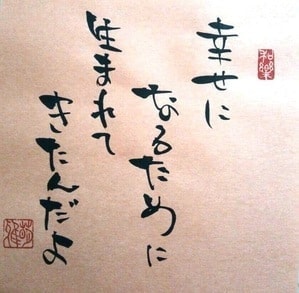 幸せに
なるために
生まれて
きたんだよ
和樂